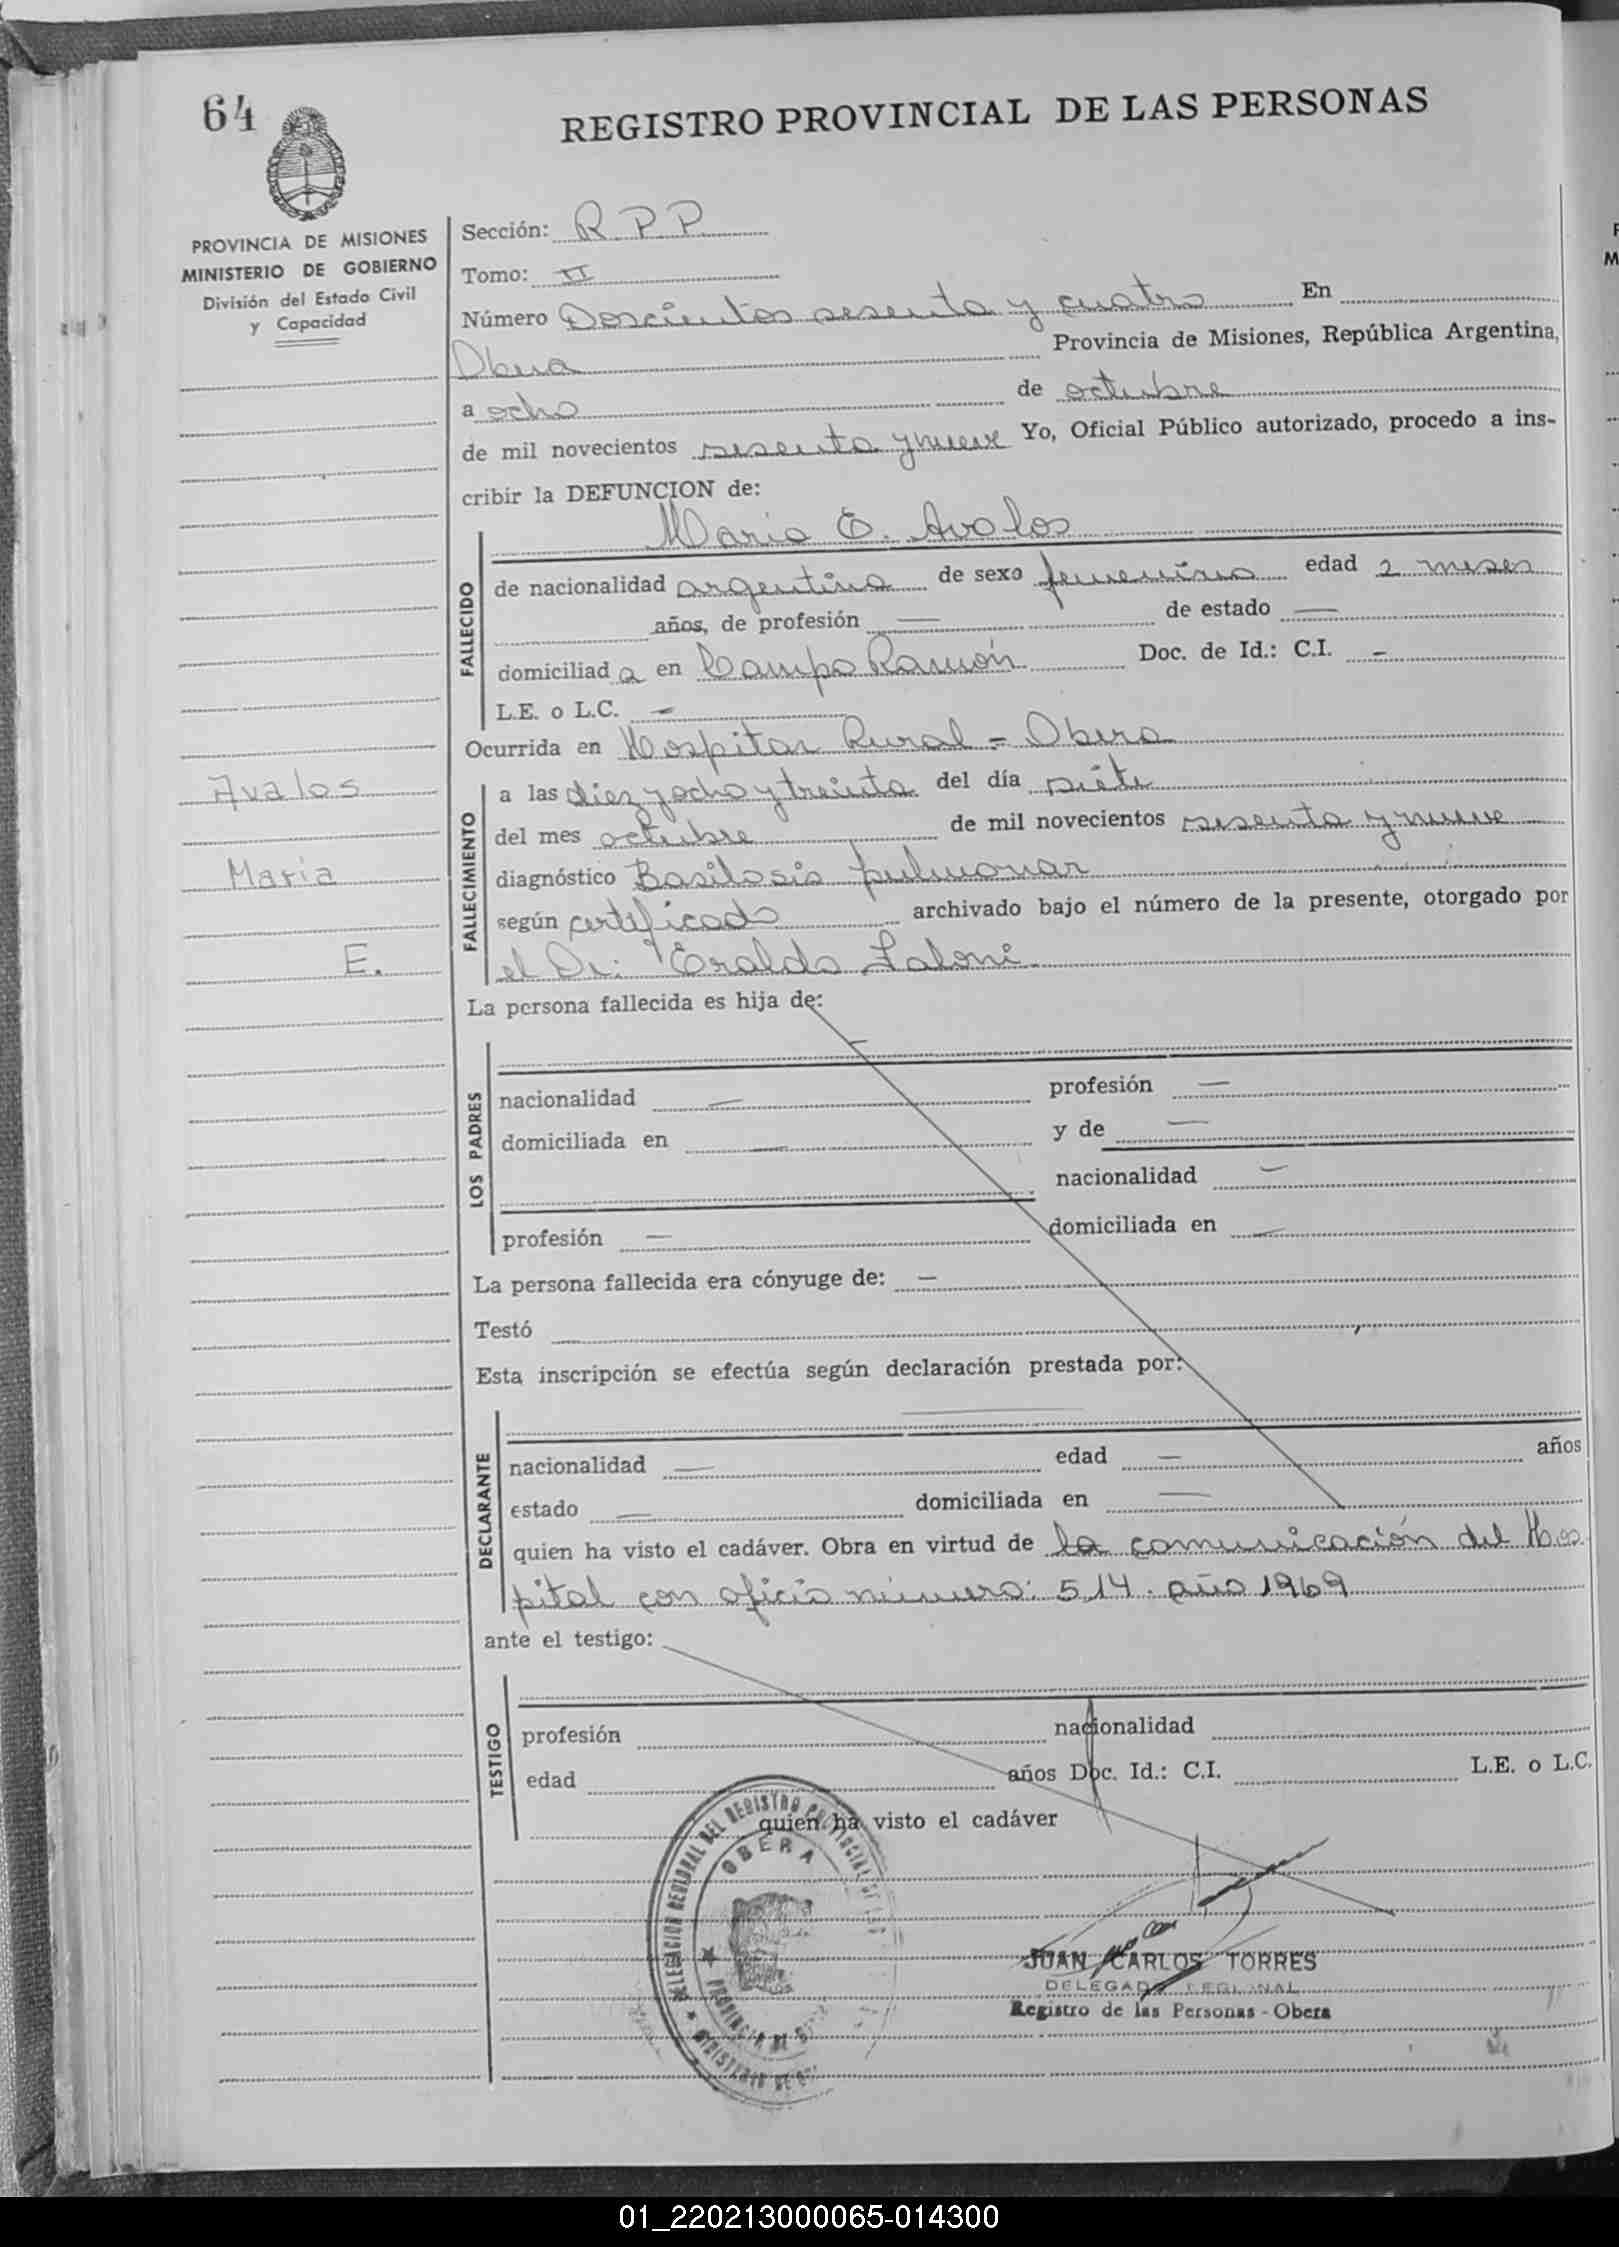 64
REGISTRO PROVINCIAL DE LAS PERSONAS
PROVINCIA DE MISIONES
MINISTERIO DE GOBIERNO
División del Estado Civil
y Capacidad
Sección: R.P.P.
Tomo: II
Número Doscientos sesenta y cuatro En
Obera Provincia de Misiones, República Argentina,
a ocho de octubre
de mil novecientos sesenta y nueve Yo, Oficial Público autorizado, procedo a ins-
cribir la DEFUNCION de:
Maria E. Avalos
FALLECIDO
de nacionalidad argentina de sexo femenino edad 2 meses
años, de profesión — de estado —
domiciliada en Campo Ramón Doc. de Id.: C.I. -
L.E. o L.C. -
Ocurrida en Hospital Rural - Obera
Avalos
Maria
E.
FALLECIMIENTO
a las diez y ocho y treinta del día siete
del mes octubre de mil novecientos sesenta y nueve
diagnóstico Basilosis pulmonar
según certificado archivado bajo el número de la presente, otorgado por
el Dr: Eraldo
La persona fallecida es hija de:
LOS PADRES
nacionalidad — profesión —
domiciliada en — y de —
nacionalidad —
profesión — domiciliada en —
La persona fallecida era cónyuge de: —
Testó
Esta inscripción se efectúa según declaración prestada por:
DECLARANTE
nacionalidad — edad — años
estado — domiciliada en —
quien ha visto el cadáver. Obra en virtud de la comunicación del Hos
pital con oficio número: 514. año 1969
ante el testigo:
TESTIGO
profesión nacionalidad
edad años Doc. Id.: C.I. L.E. o L.C.
quien ha visto el cadáver
DELEGACION REGIONAL DEL REGISTRO PROVINCIAL DE LAS
OBERA
PROVINCIA DE
MINISTERIO DE
JUAN CARLOS TORRES
DELEGADO REGIONAL
Registro de las Personas - Obera
01_220213000065-014300